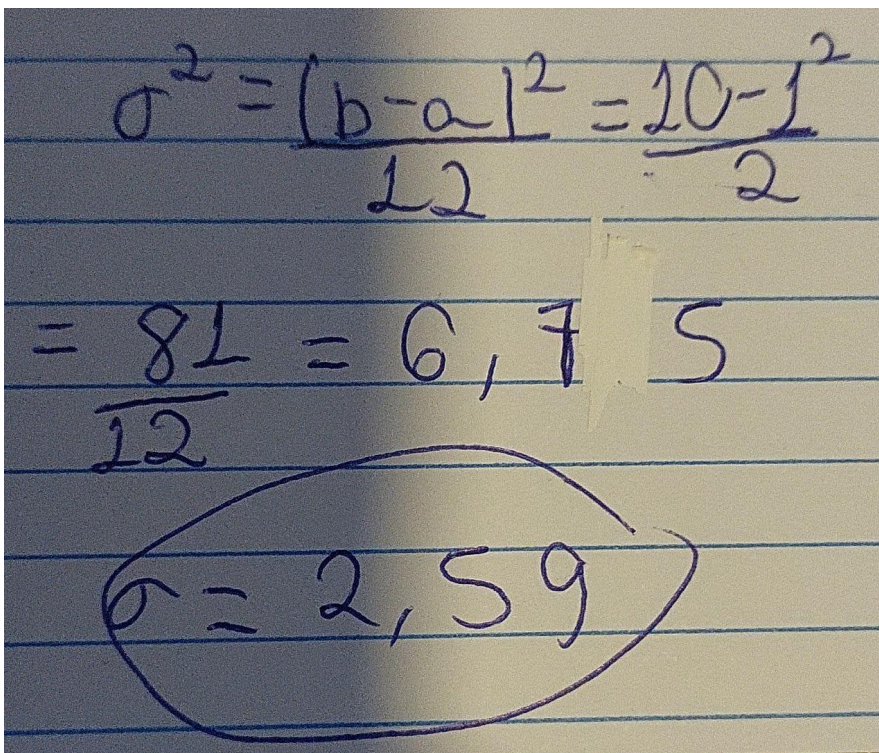 σ² = (b-a)²/12 = 10-1²/2
= 81/12 = 6,7 5
σ = 2,59